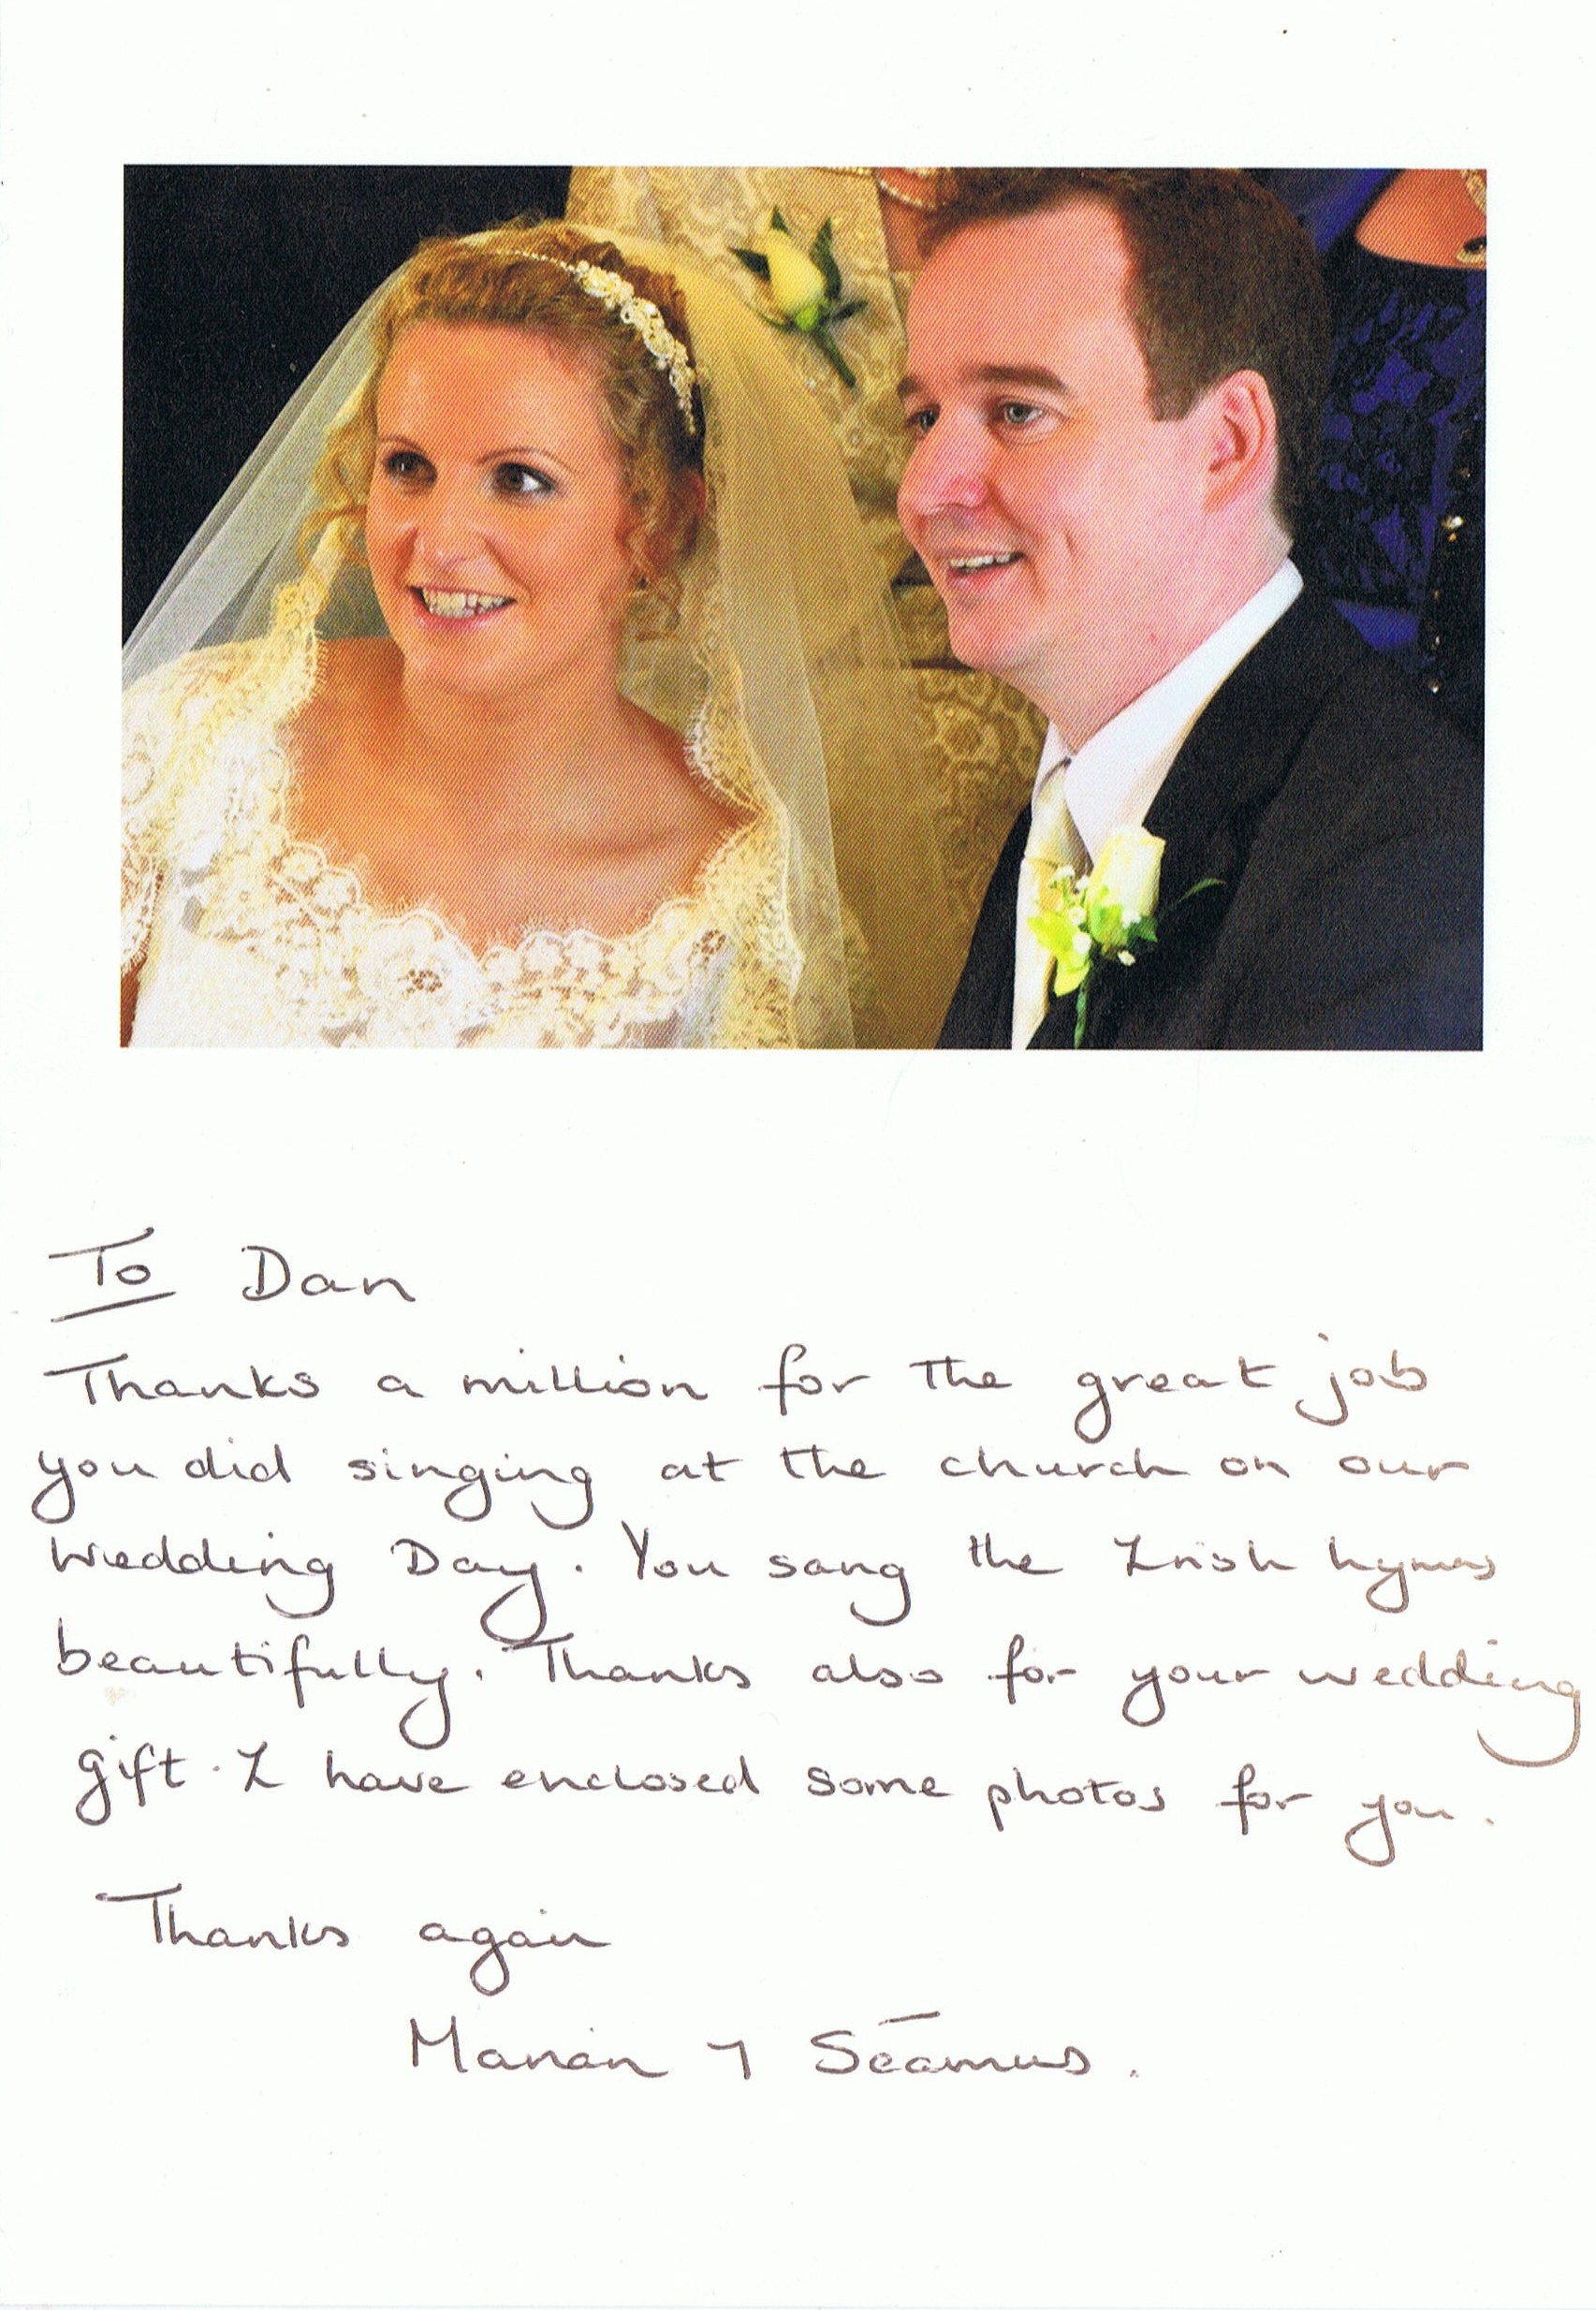 To Dan
Thanks a million for the great job
you did singing at the church on our
Wedding Day. You sang the Irish hymns
beautifully. Thanks also for your wedding
gift. I have enclosed some photos for you.
Thanks again
Marian & Séamus.